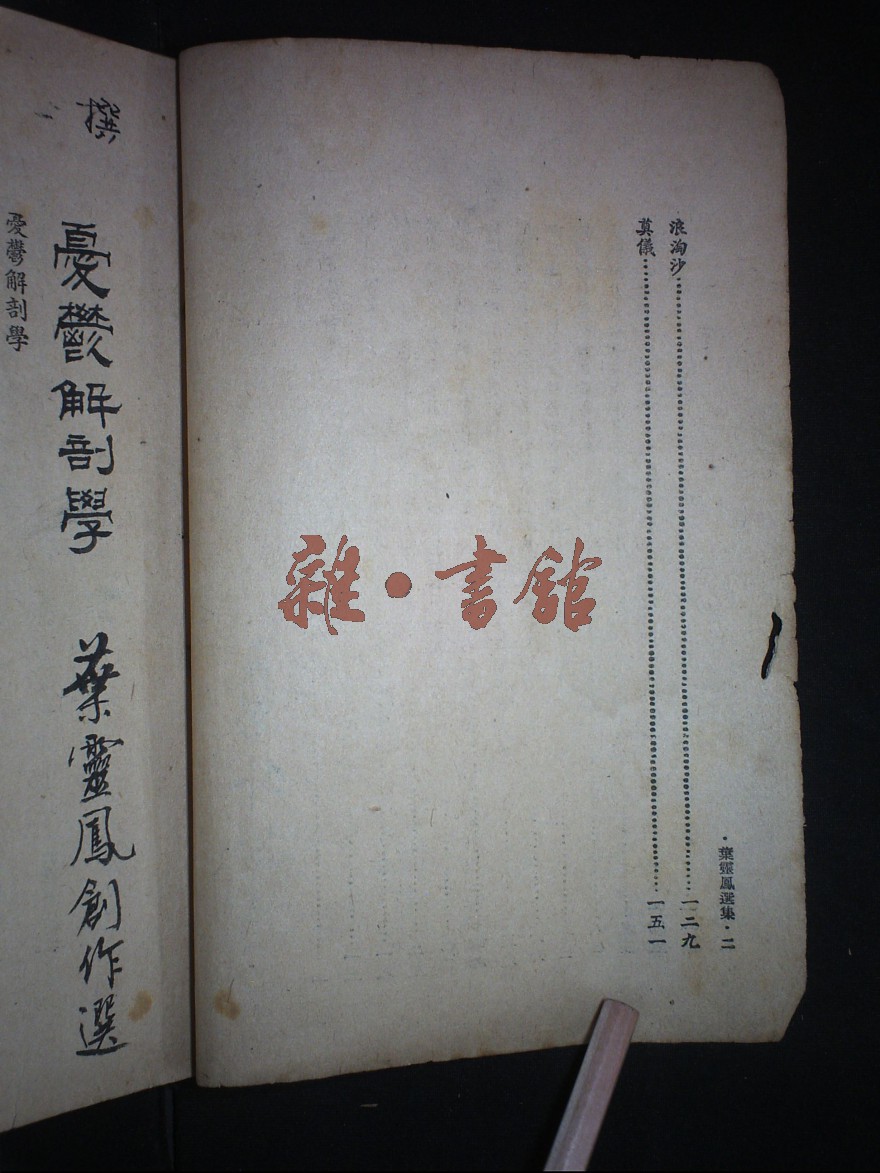 ·葉靈鳳選集·二
浪淘沙……一二九
奠儀……一五一
雜·書館
撰
憂鬱解剖學 葉靈鳳創作選
憂鬱解剖學